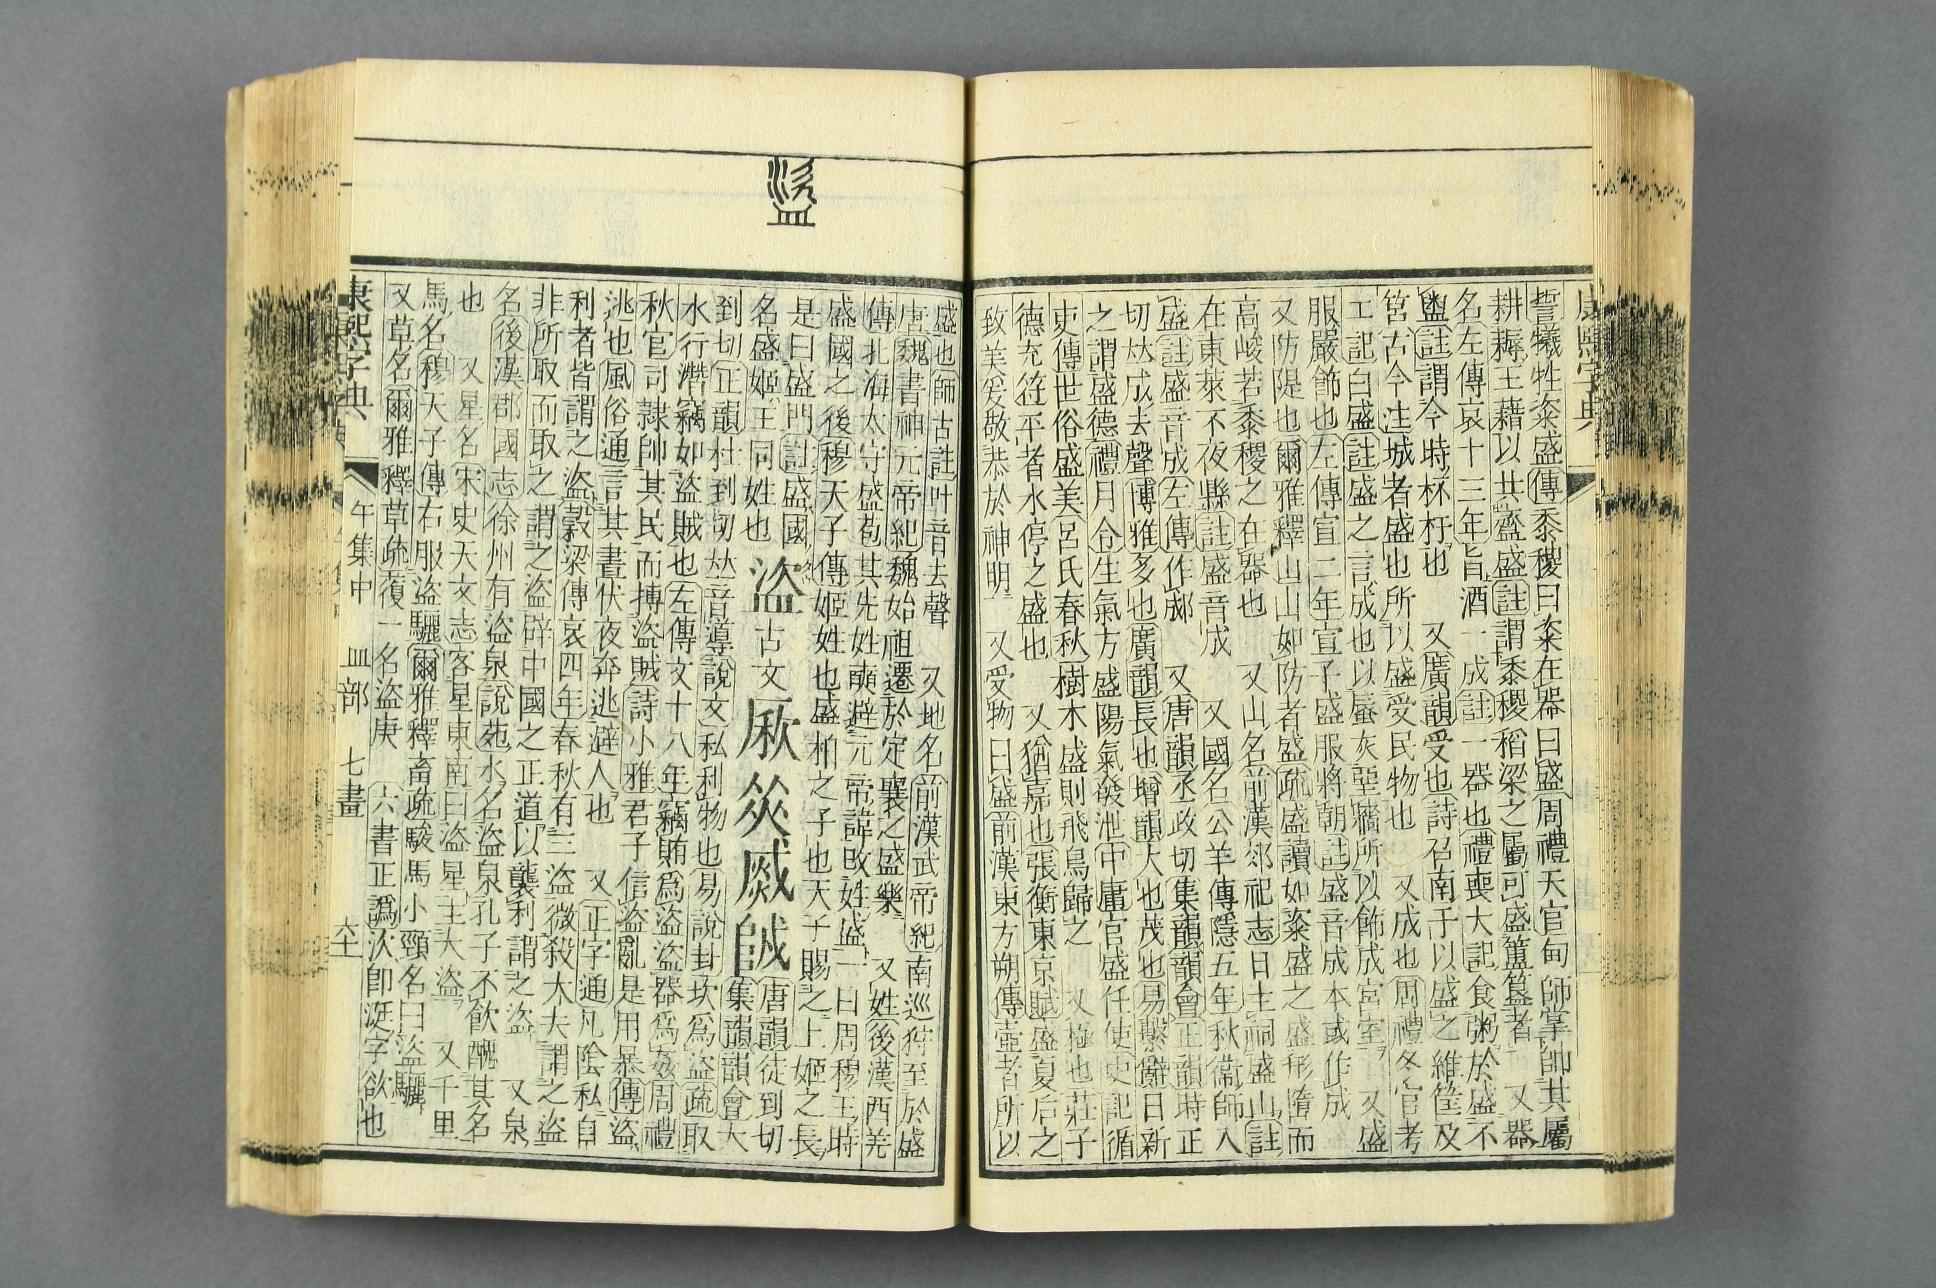 誓犧牲粢盛傳黍稷曰粢在器曰盛周禮天官甸師掌帥其屬
耕耨王藉以共齍盛註謂黍稷稻梁之屬可盛簠簋者 又器
名左傳哀十三年旨酒一成註一器也禮喪大記食粥於盛不
盥註謂今時杯杅也 又廣韻受也詩召南于以盛之維筐及
筥古今注城者盛也所以盛受民物也 又成也周禮冬官考
工記白盛註盛之言成也以蜃灰堊牆所以飾成宮室 又盛
服嚴飾也左傳宣二年宣子盛服將朝註盛音成本或作成
又防隄也爾雅釋山山如防者盛疏盛讀如粢盛之盛形隋而
高峻若黍稷之在器也 又山名前漢郊祀志日主祠盛山註
在東萊不夜縣註盛音成 又國名公羊傳隱五年秋衞師入
盛註盛音成左傳作郕 又唐韻丞政切集韻韻會正韻時正
切𠀤成去聲博雅多也廣韻長也增韻大也茂也易繫辭日新
之謂盛德禮月令生氣方盛陽氣發泄中庸官盛任使史記循
吏傳世俗盛美呂氏春秋樹木盛則飛鳥歸之 又極也莊子
德充符平者水停之盛也 又猶嘉也張衡東京賦盛夏后之
致美爰敬恭於神明 又受物曰盛前漢東方朔傳壺者所以
盜
盛也師古註叶音去聲 又地名前漢武帝紀南巡狩至於盛
唐魏書神元帝紀魏始祖遷於定襄之盛樂 又姓後漢西羌
傳北海太守盛苞其先姓奭避元帝諱改姓盛一曰周穆王時
盛國之後穆天子傳盛姬姓也盛柏之子也天子賜之上姬之長
是曰盛門註盛國
名盛姬王同姓也 盜古文㓹㷋㷼䤋唐韻徒到切
集韻韻會大
到切正韻杜到切𠀤音導說文私利物也易說卦坎爲盜疏取
水行潛竊如盜賊也左傳文十八年竊賄爲盜盜器爲姦周禮
秋官司隸帥其民而搏盜賊詩小雅君子信盜亂是用暴傳盜
逃也風俗通言其晝伏夜奔逃避人也 又正字通凡陰私自
利者皆謂之盜穀梁傳哀四年春秋有三盜微殺大夫謂之盜
非所取而取之謂之盜辟中國之正道以襲利謂之盜 又泉
名後漢郡國志徐州有盜泉說苑水名盜泉孔子不飮醜其名
也 又星名宋史天文志客星東南曰盜星主大盜 又千里
馬名穆天子傳右服盜驪爾雅釋畜疏駿馬小頸名曰盜驪
又草名爾雅釋草疏蕧一名盜庚 六書正譌㳄卽涎字欲也
康熙字典 午集中 皿部 七畫 六十
康熙字典